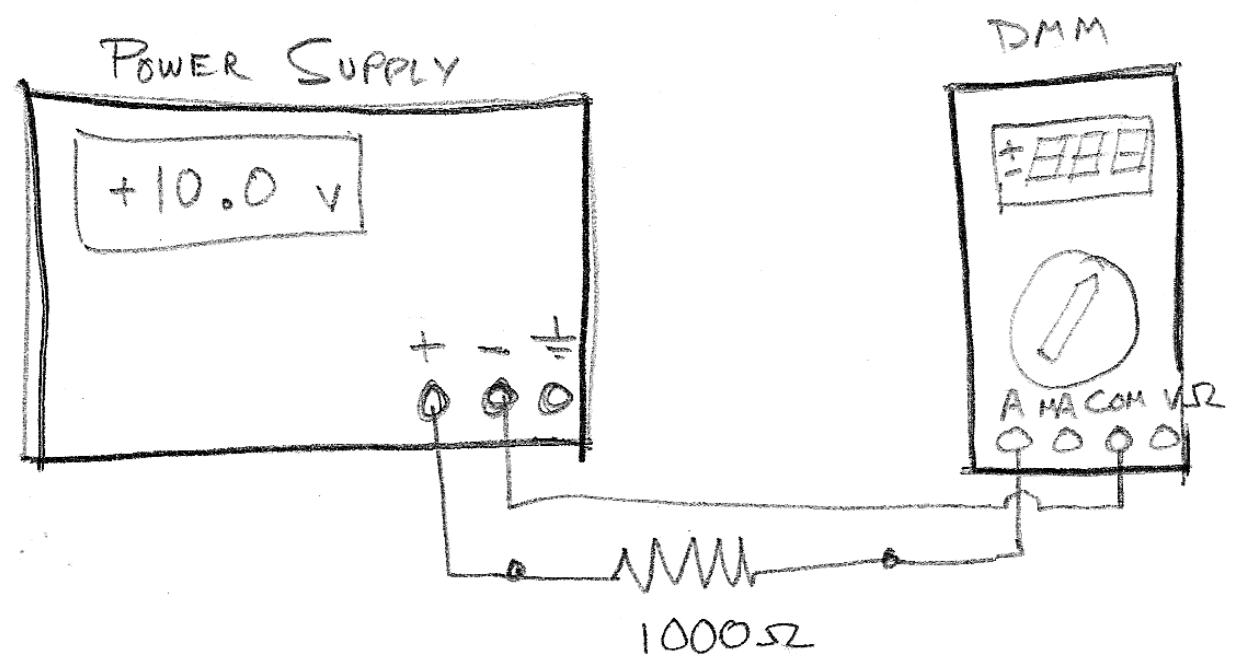 POWER SUPPLY
DMM
+10.0 V
±
+ -
A MA COM VΩ
1000Ω